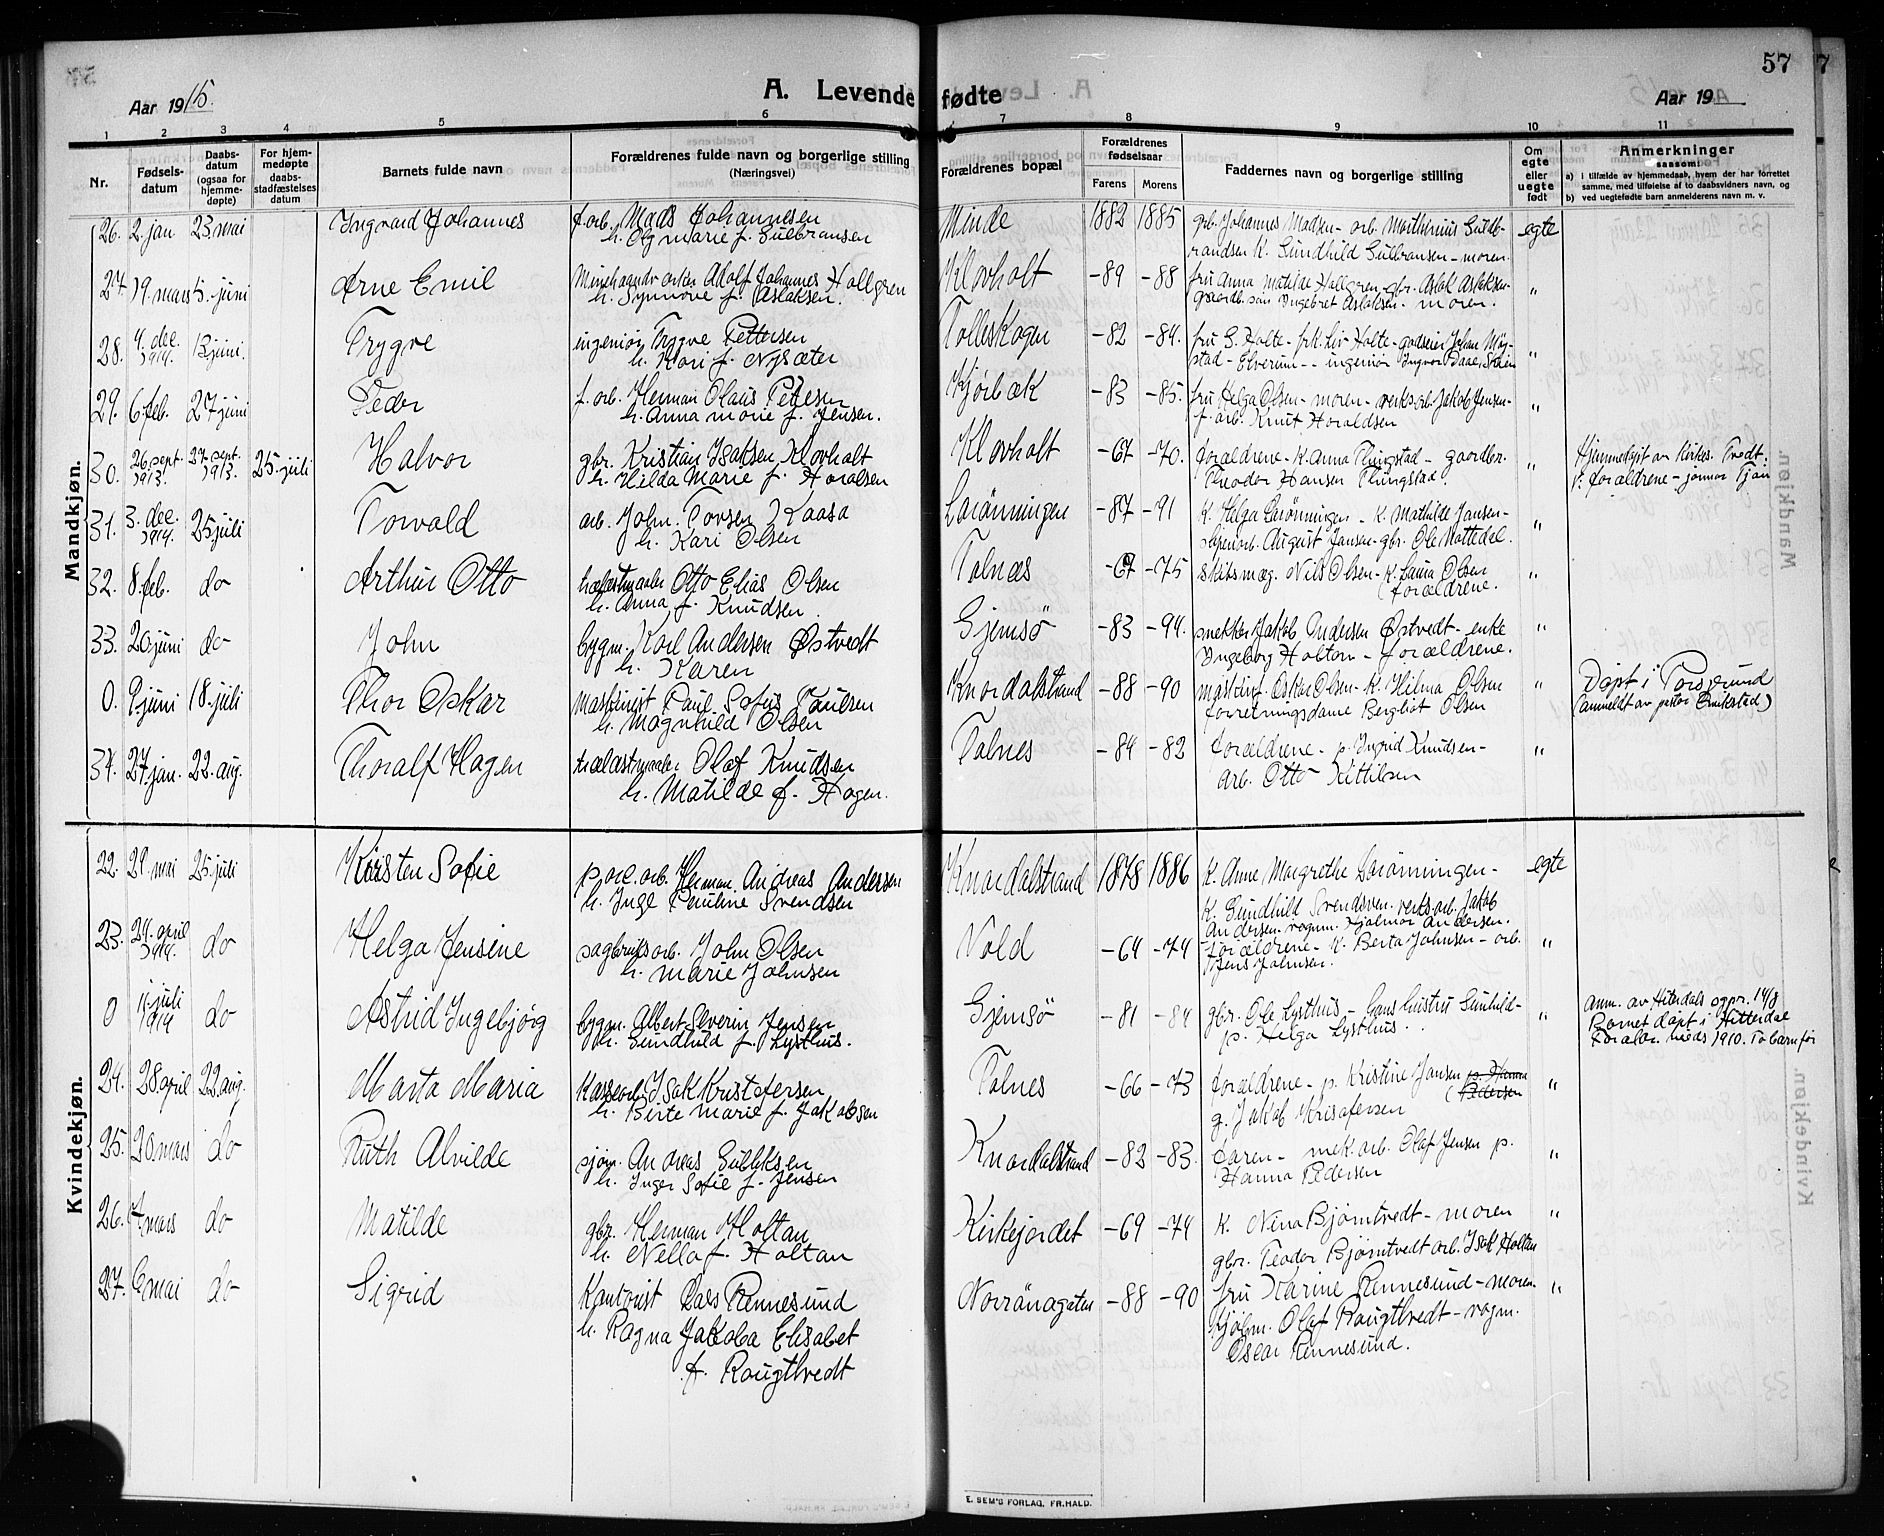 57
Aar 1915.
A. Levende fødte
Aar 19
1 2 3 4 5 6 7 8 9 10 11
Nr.
Fødsels-
datum
Daabs-
datum
(ogsaa for
hjemme-
døpte)
For hjem-
medøpte
daabs-
stadfæstelses
datum
Barnets fulde navn
Forældrenes fulde navn og borgerlige stilling
(Næringsvei)
Forældrenes bopæl
Forældrenes
fødselsaar
Farens Morens
Faddernes navn og borgerlige stilling
Om
egte
eller
uegte
født
Anmerkninger
saasom:
a) i tilfælde av hjemmedaab, hvem der har forrettet
samme, med tilføielse af to daabsvidners navn, og
b) ved uegtefødte barn anmelderens navn m. v.
Mandkjøn.
26. 2. jan 23. mai Ingvard Johannes f.arb. Mads Johannesen Minde 1882 1885 grb. Johannes Madsen - arb. Guldb- egte
h. Olg marie f. Gulbransen randsen k. Gundhild Gulbransen - moren
27. 19. mars 5. juni Arne Emil Adolf Johannes Hallgren Klovholt -89 -88 fru Anna Matilde Hallgren - gbr. Aslak Aslaksen "
h. Synnøve f. Aslaksen. Ingebret Aslaksen. moren.
28. 4. dec. 1914. 13 juni. Trygve ingeniør Trygve Pettersen Tolleskogen -82 -84. fru G. Holte - frk. Liv Holte - godseier Johan
h. Kari f. Nysæter stad - Elverum - ingeniør Ingvar Daae, "
29. 6 feb. 27 juni Peder f. arb. Herman Olaus Petersen Kjørbæk -83 -85. fru Helga Olsen - moren - verksarb. Jakob Jensen - "
h. Anna marie f. Jensen. f. arb. Knut Haraldsen
30. 26. sept. 1913. 27. sept. 1913. 25. juli Halvor gbr. Kristian Isaksen Klovholt Klovholt -67 -70. forældrene - k. Anna Thingstad - gaardbr. " Hjemmedøpt av
h. Hilda Marie f. Haralsen Theodor Hansen Thingstad. forældrene - jonmor
31. 3. dec. 1914. 25 juli Torvald arb. John Tovsen Kaasa Larönningen -87 -91 k. Helga Larönningen - k. Mathilde Jansen -
h. Kari Olsen August Jansen - gbr. Ole "
32. 8. feb. do Arthur Otto Otto Elias Olsen Tolnæs -67 -75 Nils Olsen - k. Laura Olsen "
h. Anna f. Knudsen (forældrene.
33. 20 juni do John bygm. Karl Andersen Østvedt Gjemsö -83 -94. snekker Jakob Andersen Østvedt - enke "
h. Karen Ingeborg Holtan - forældrene.
0. 9 juni 18. juli Thor Oskar Maskinist Paul Sofus Paulsen Knardalstrand -88 -90 Oskar Olsen - k. Hilma Olsen " Døpt i Porsgrund
h. Magnhild Olsen forretningsdame Bergliot Olsen (anmeldt av pastor
34. 27. jan. 22. aug. Thoralf Hagen Olaf Knudsen Tolnes -84 -82 forældrene - p. Ingrid Knudsen - "
h. Matilde f. Hagen. arb. Otto Kittilsen
Kvindekjøn.
22. 29. mai 25. juli Kirsten Sofie Herman Andreas Andersen Knardalstrand 1878 1886 k. Anne Margrethe Larönningen - egte
h. Inge Pauline Svendsen k. Gundhild Svendsen. verksarb. Jakob
Andersen. vognm. Hjalmar Andersen.
23. 24. april 1914. do Helga Jensine sagbruksarb. John Olsen Vold -64 -74 forældrene - k. Berta Johnsen - arb. "
h. Marie Johnsen Jens Johnsen.
0 11. juli 1914 do Astrid Ingebjørg bygm. Albert Severin Jensen Gjemsö -81 -84 gbr. Ole Lysthus - Gunhild - "
h. Gundhild f. Lysthus. p. Helga Lysthus.
anm. av Hiterdals sogpr. 14/8
Barnet døpt i Hitterdal
Foraldr. vieds 1910. To barn før
24. 28 april 22. aug. Marta Maria Isak Kristofersen Tolnes -66 -73 forældrene - p. Kristine Jansen p. Hanna "
h. Birte Marie f. Jakobsen (Pedersen
g. Jakob Krisofersen
25. 20 mars do Ruth Alvilde sjøm. Andreas Gulliksen Knardalstrand -82 -83. faren - mek. arb. Olaf Jensen p. "
h. Inger Sofie f. Jensen Hanna Pedersen
26. mars do Matilde gbr. Herman Holtan Kirkejordet -69 -74 k. Nina Bjørntvedt - moren "
h. Nella f. Holtan gbr. Teodor Bjørntvedt arb. Isak Holtan
27. 6 mai do Sigrid Kontorist Lars Rennesund Norrönagaten -88 -90 fru Karine Rennesund - moren. "
h. Ragna Jakoba Elisabet kjøbm. Olaf Raugtvedt - vogm.
f. Raugtvedt Oscar Rennesund.
E. SEM'S FORLAG, FR.HALD.